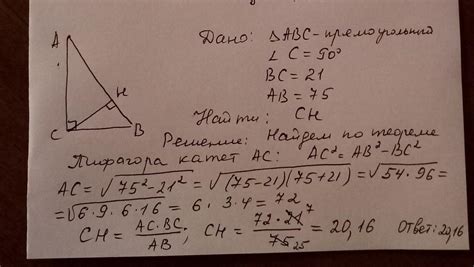 A
H
C
B
Дано: ΔABC - прямоугольный
∠C = 90°
BC = 21
AB = 75
Найти: CH
Решение: Найдем по теореме
Пифагора катет AC: AC² = AB² - BC²
AC = √(75² - 21²) = √((75-21)(75+21)) = √(54·96) =
= √(6·9·6·16) = 6·3·4 = 72
CH = AC·BC / AB; CH = 72·21 7 / 75 25 = 20,16 Ответ: 20,16